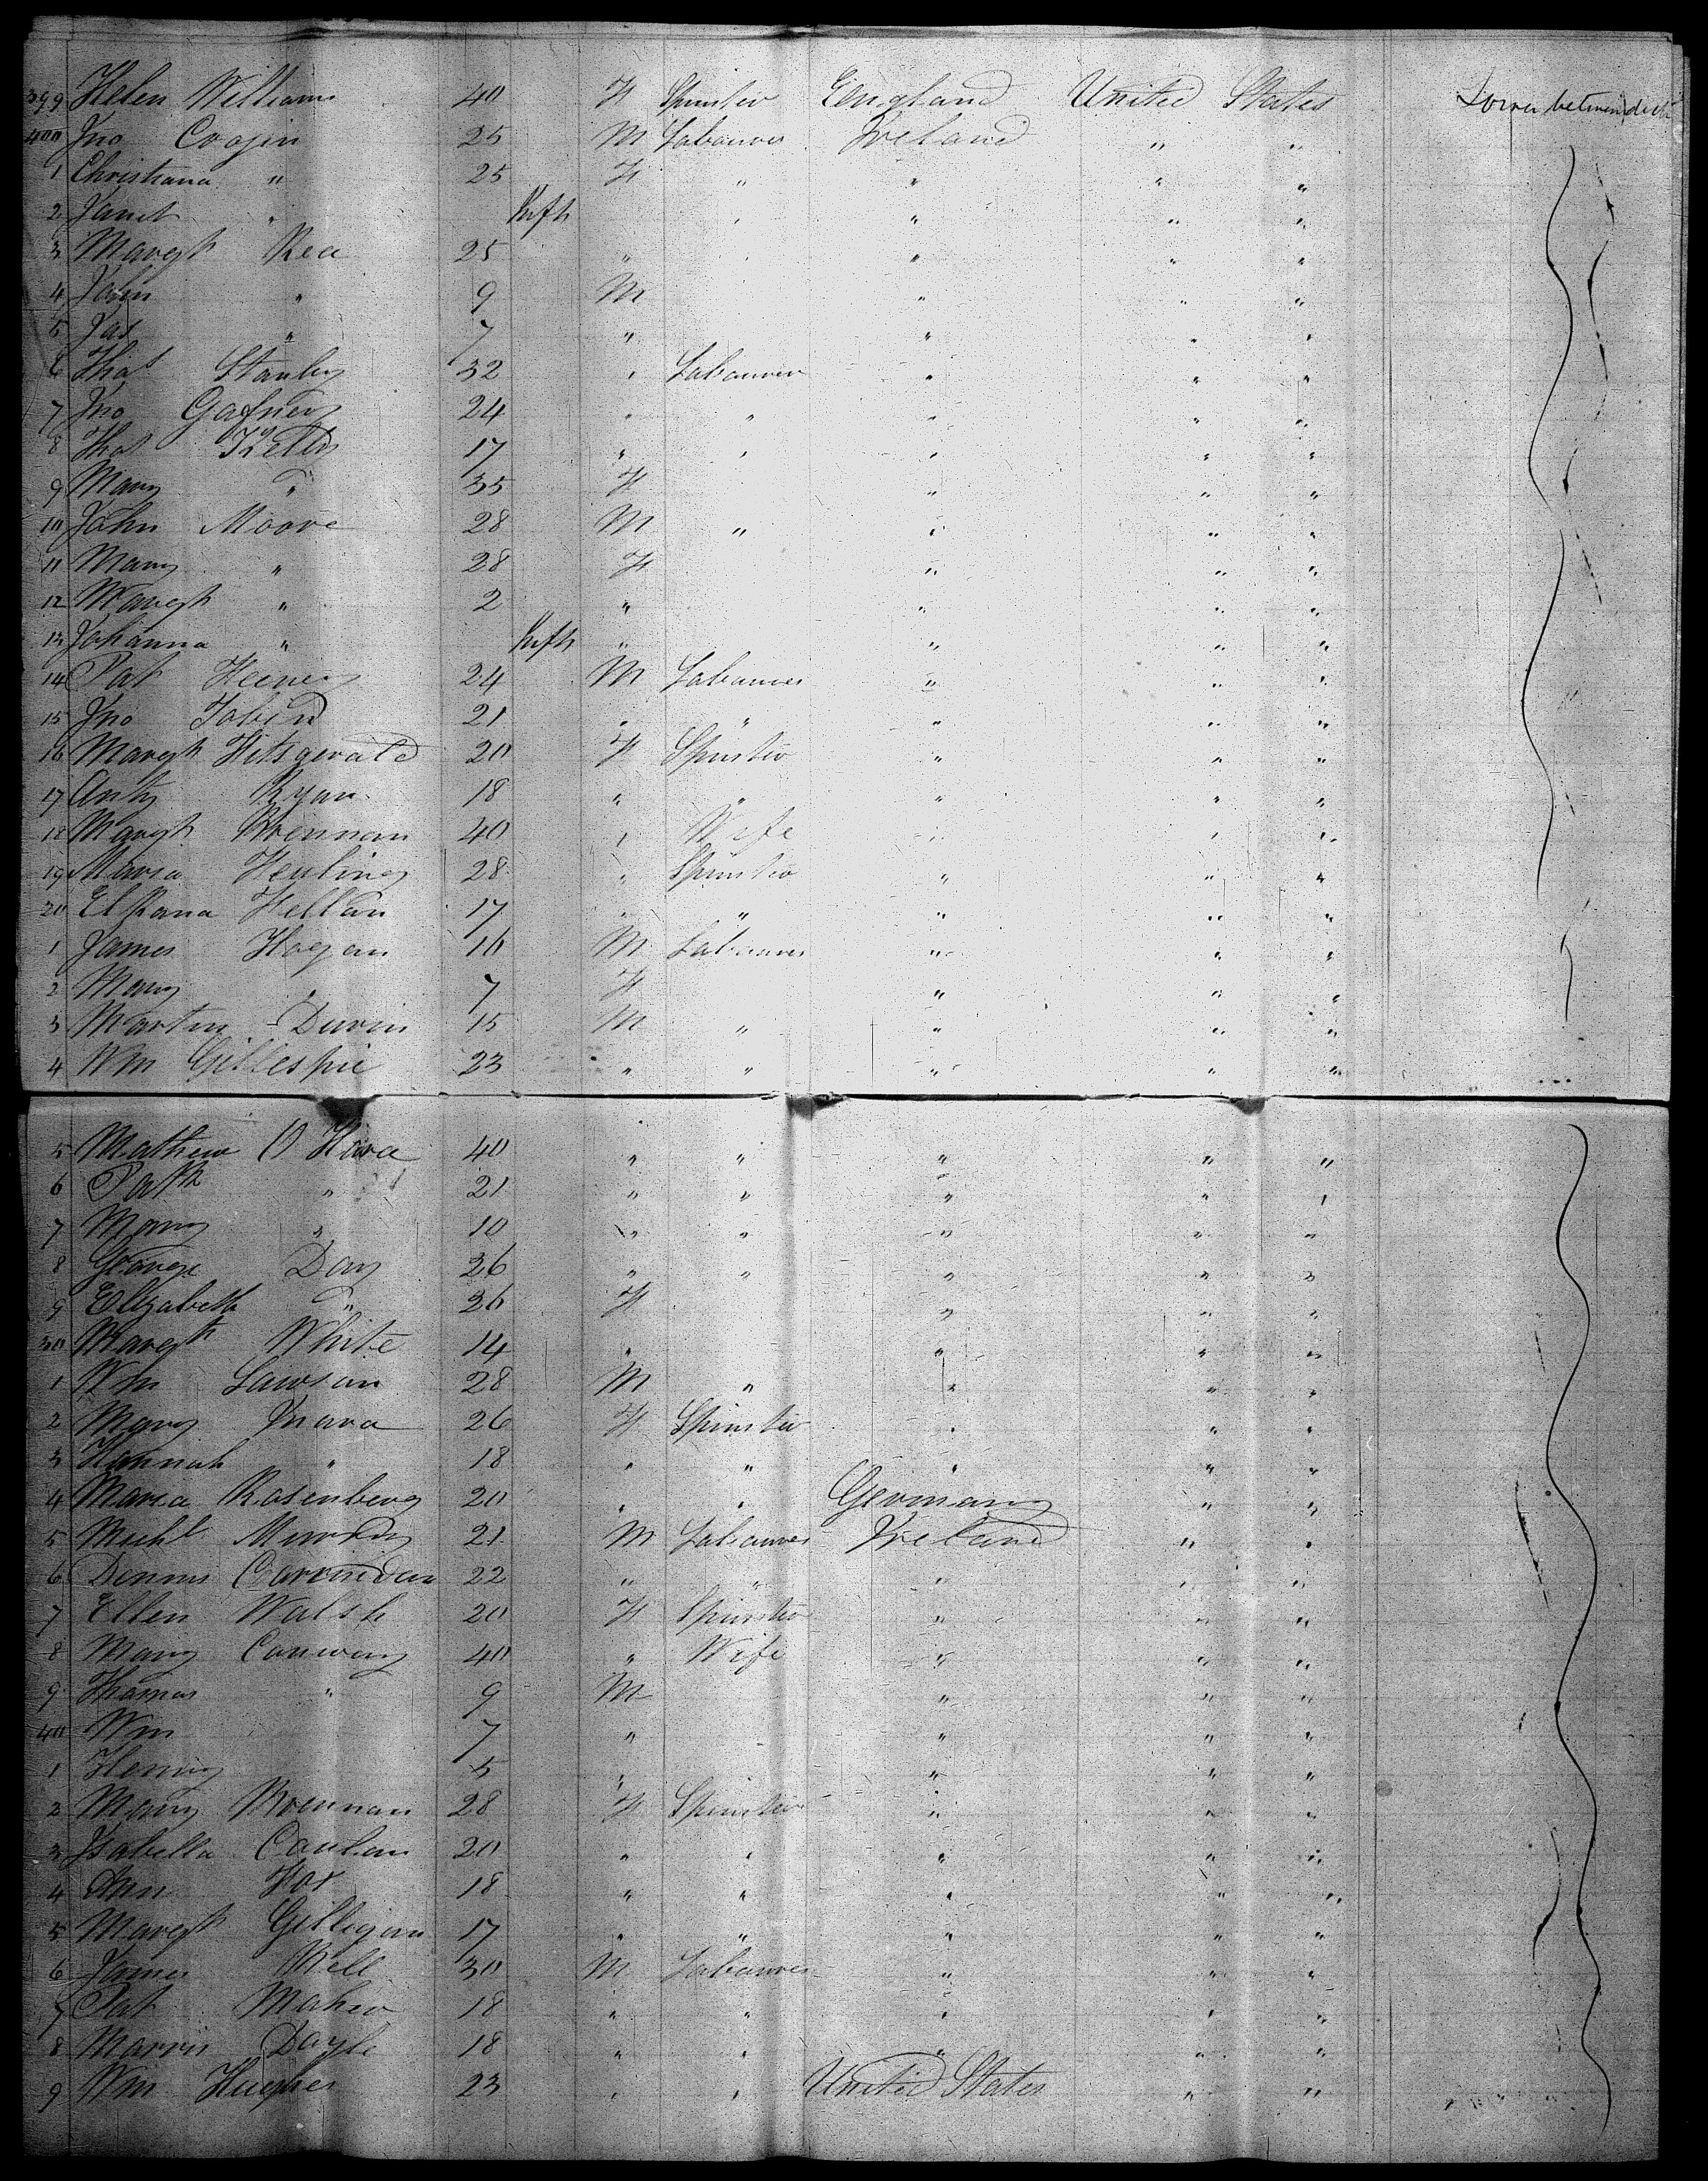 399 Helen Williams 40 F Spinster England United States Lower between decks
400 Jno Coogin 25 M Labourer Ireland " "
1 Christiana " 25 F " " " "
2 Janet " Inft " " " "
3 Margt Rea 25 " " " " "
4 John " 9 M " " "
5 Jas " 7 " " " "
6 Thos Stanley 32 " Labourer " " "
7 Jno Gafney 24 " " " " "
8 Thos Kelly 17 " " " " "
9 Mary " 35 F " " "
10 John Moore 28 M " " " "
11 Mary " 28 F " " "
12 Margt " 2 " " " "
13 Johanna " Inft " " " "
14 Pat Heeney 24 M Labourer " " "
15 Jno Tobin 21 " " " " "
16 Margt Fitsgerald 20 F Spinster " " "
17 Anty Ryan 18 " " " " "
18 Margt Brennan 40 " Wife " " "
19 Maria 28 " Spinster " " "
20 17 " " " " "
1 James Hogan 16 M Labourer " " "
2 Mary " 7 F " " "
3 Martin Durin 15 M " " " "
4 Wm Gillespie 23 " " " " "
5 Mathew O Hara 40 " " " " "
6 Patk " 21 " " " " "
7 Mary " 10 " " " " "
8 George Day 26 " " " " "
9 Elizabeth " 26 F " " "
30 Margt White 14 " " " "
1 Wm Lawson 28 M " " " "
2 Mary Mara 26 F Spinster " " "
3 Hannah " 18 " " " " "
4 Maria Rosenberg 20 " " Germany " "
5 Michl Murphy 21 M Labourer Ireland " "
6 Dennis 22 " " " " "
7 Ellen Walsh 20 F Spinster " " "
8 Mary Conway 40 " Wife " " "
9 Thomas " 9 M " " "
40 Wm 7 " " " "
1 Henry 5 " " " "
2 Mary Brennan 28 F Spinster " " "
3 Isabella Conlan 20 " " " " "
4 Ann Fox 18 " " " " "
5 Margt Gilligan 17 " " " " "
6 James Bell 30 M Labourer " " "
7 Pat Maher 18 " " " " "
8 Morris Doyle 18 " " " " "
9 Wm Hughes 23 " " United States " "